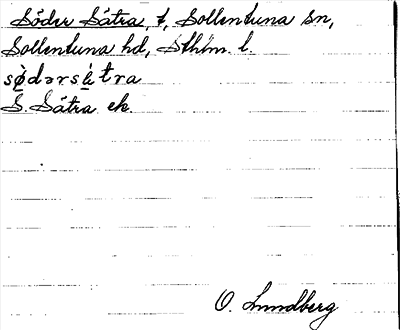 Söder Sätra, t, Sollentuna sn,
Sollentuna hd, Sthlm. l.
sø̀dərsɛ́tra
S. Sätra ek.
O. Lundberg